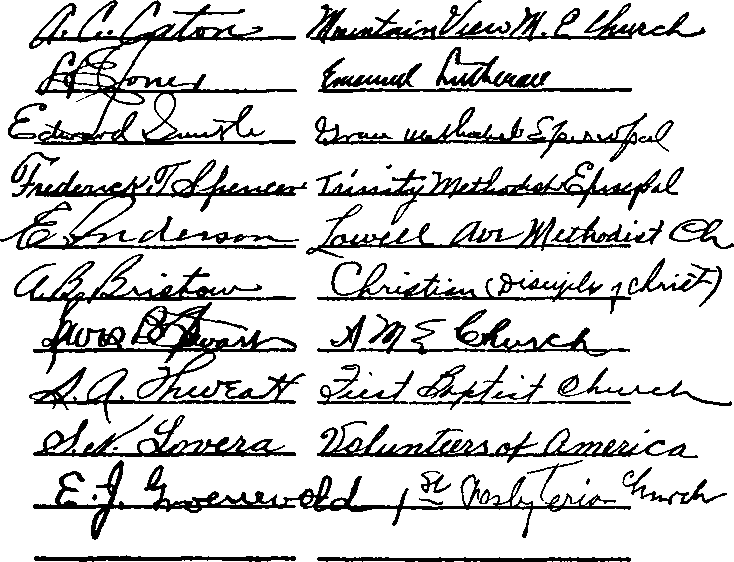 A. C. Caton Mountain View M. E Church
H E Jones Emanuel Lutheran
Edward Smith Grace Methodist Episcopal
Frederick T Spencer Trinity Methodist Episcopal
E Anderson Lowell Ave Methodist Ch
A. B. Bristow Christian (Disciples of Christ)
B Stewart A M E Church
A. Thweatt First Baptist Church
S. N. Lovera Volunteers of America
E. J. Groenewold 1st Presbyterian Church